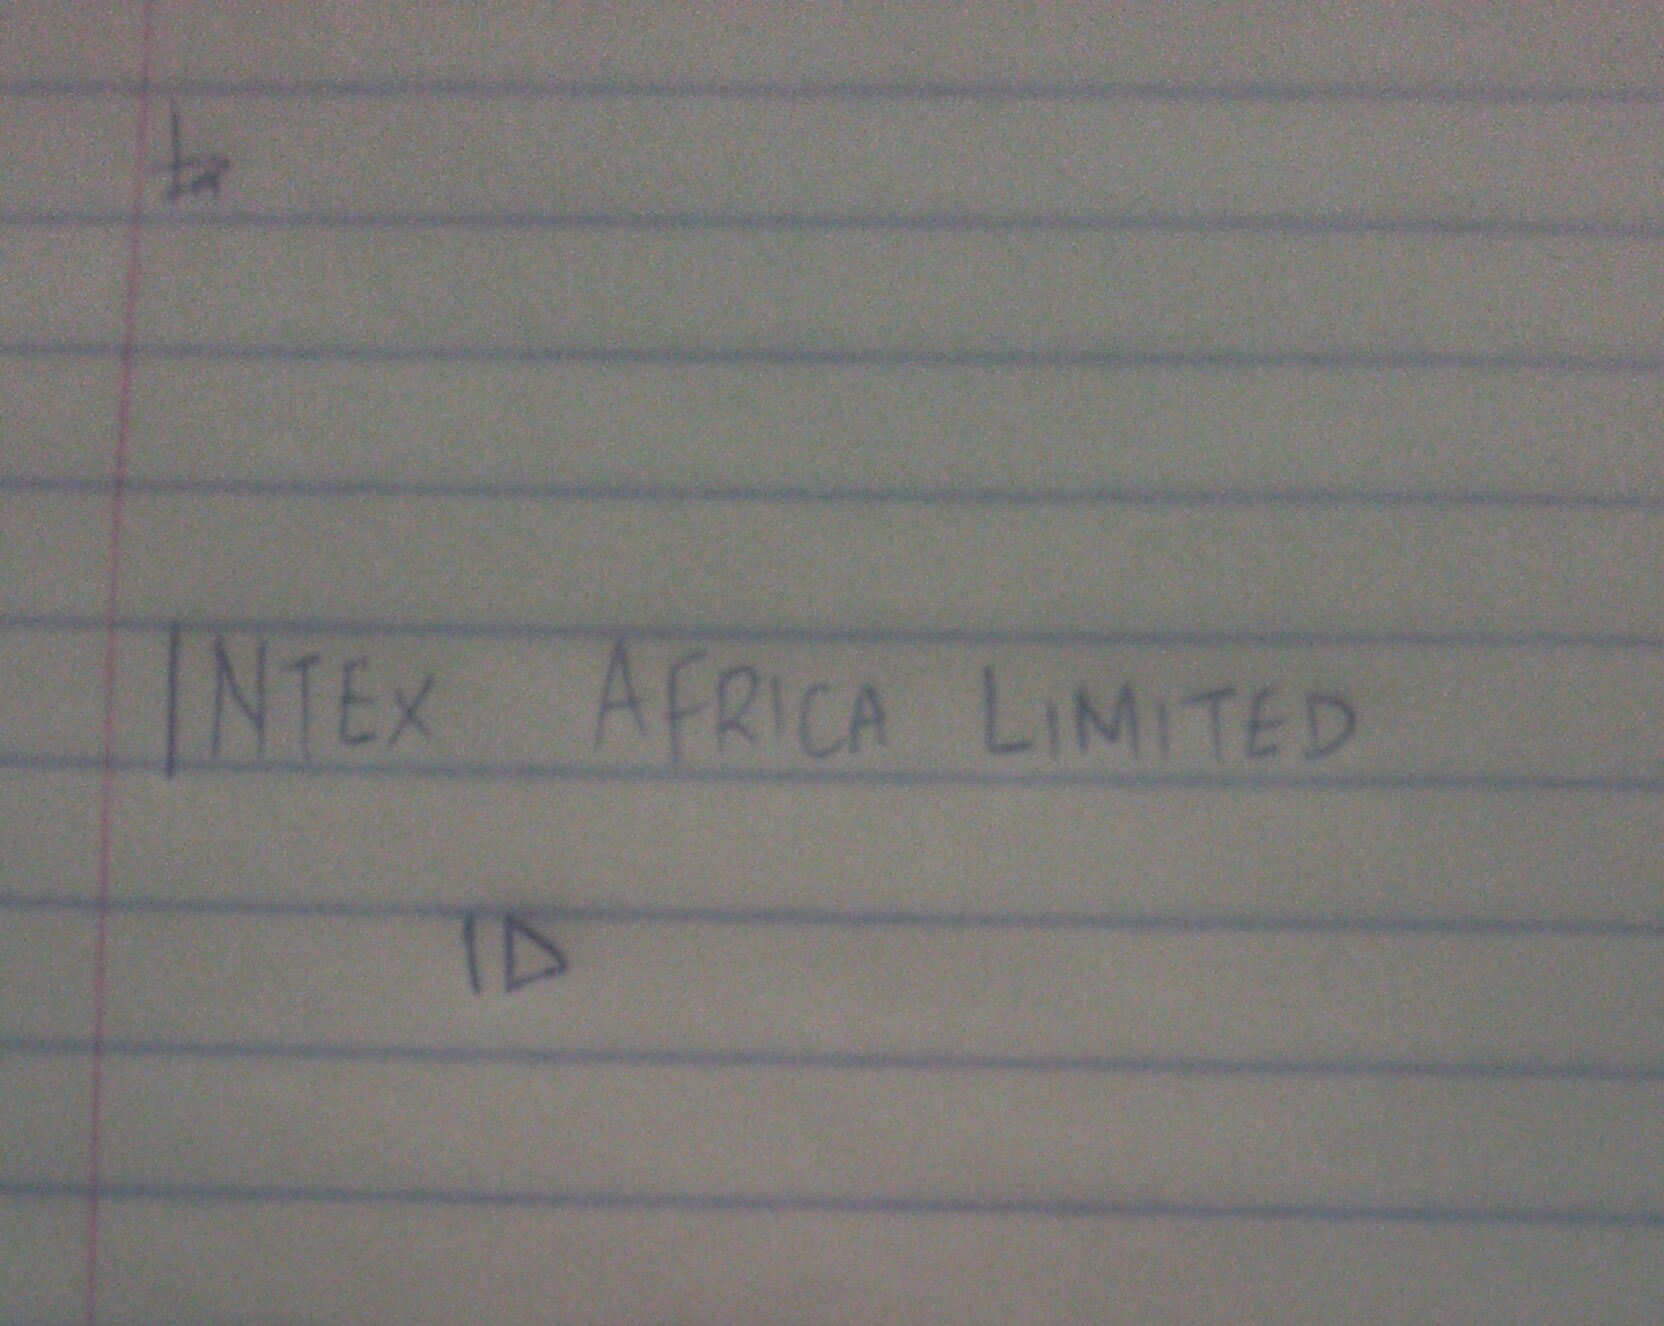 INTEX AFRICA LIMITED
ID